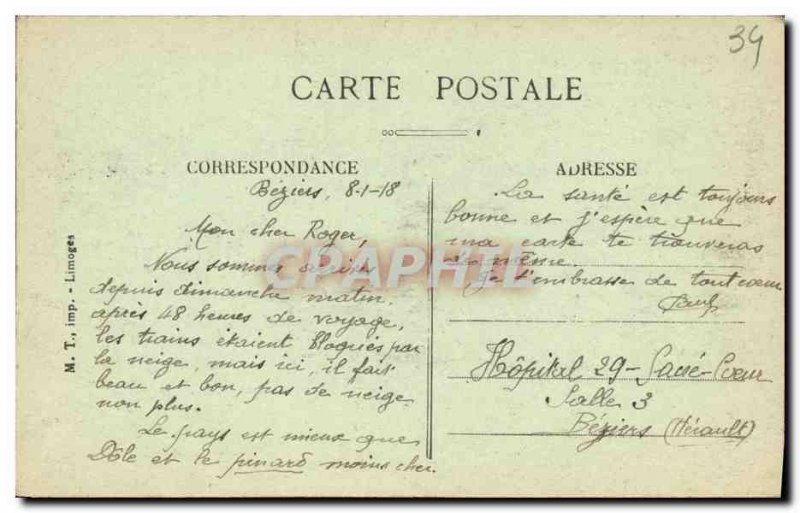 34
CARTE POSTALE
CORRESPONDANCE
Béziers, 8-1-18
Mon cher Roger,
Nous sommes arrivés
depuis dimanche matin,
après 48 heures de voyage,
les trains étaient bloqués par
la neige, mais ici, il fait
beau et bon, pas de neige
non plus.
Le pays est mieux que
Dôle et le pinard moins cher.
ADRESSE
La santé est toujours
bonne et j'espère que
ma carte te trouveras
de même.
Je t'embrasse de tout cœur
Paul
Hôpital 29 - Sacré-Cœur
Salle 3
Béziers (Hérault)
M. T., imp. - Limoges
CPAPHIL